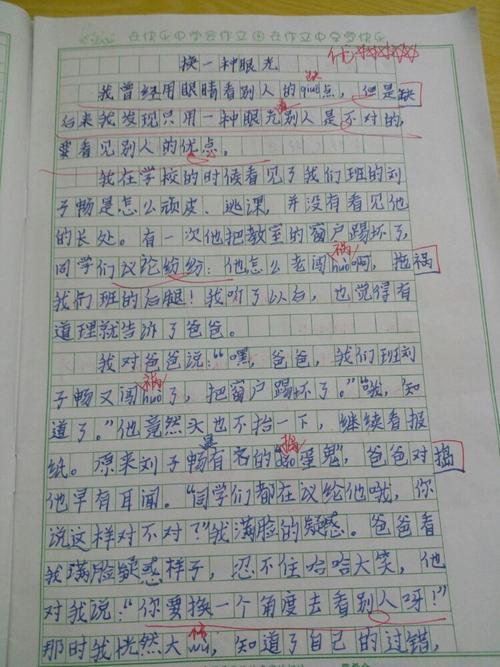 在快乐中学会作文 在作文中学会快乐
优☆☆☆☆☆
换一种眼光
缺
我曾经用眼睛看别人的quē点，但是缺
后来我发现只用一种眼光别人是不对的，
要看见别人的优点。
我在学校的时候看见了我们班的刘
子畅是怎么顽皮、逃课，并没有看见他
的长处。有一次他把教室的窗户踢坏了，
祸
同学们议论纷纷：他怎么老闯huò啊，拖祸
我们班的后腿！我听了以后，也觉得有
道理就告诉了爸爸。
我对爸爸说：“嘿，爸爸，我们班刘
祸
子畅又闯huò了，把窗户踢坏了。”“哦，知
道了。”他竟然头也不抬一下，继续看报
是 捣
纸。原来刘子畅有名的“dǎo蛋鬼”，爸爸对捣
他早有耳闻。“同学们都在议给他哦，你
说这样对不对？”我满脸的疑惑。爸爸看
我满脸疑惑样子，忍不住哈哈大笑，他
对我说：“你要换一个角度去看别人呀！”
悟
那时我恍然大wù，知道了自己的过错，